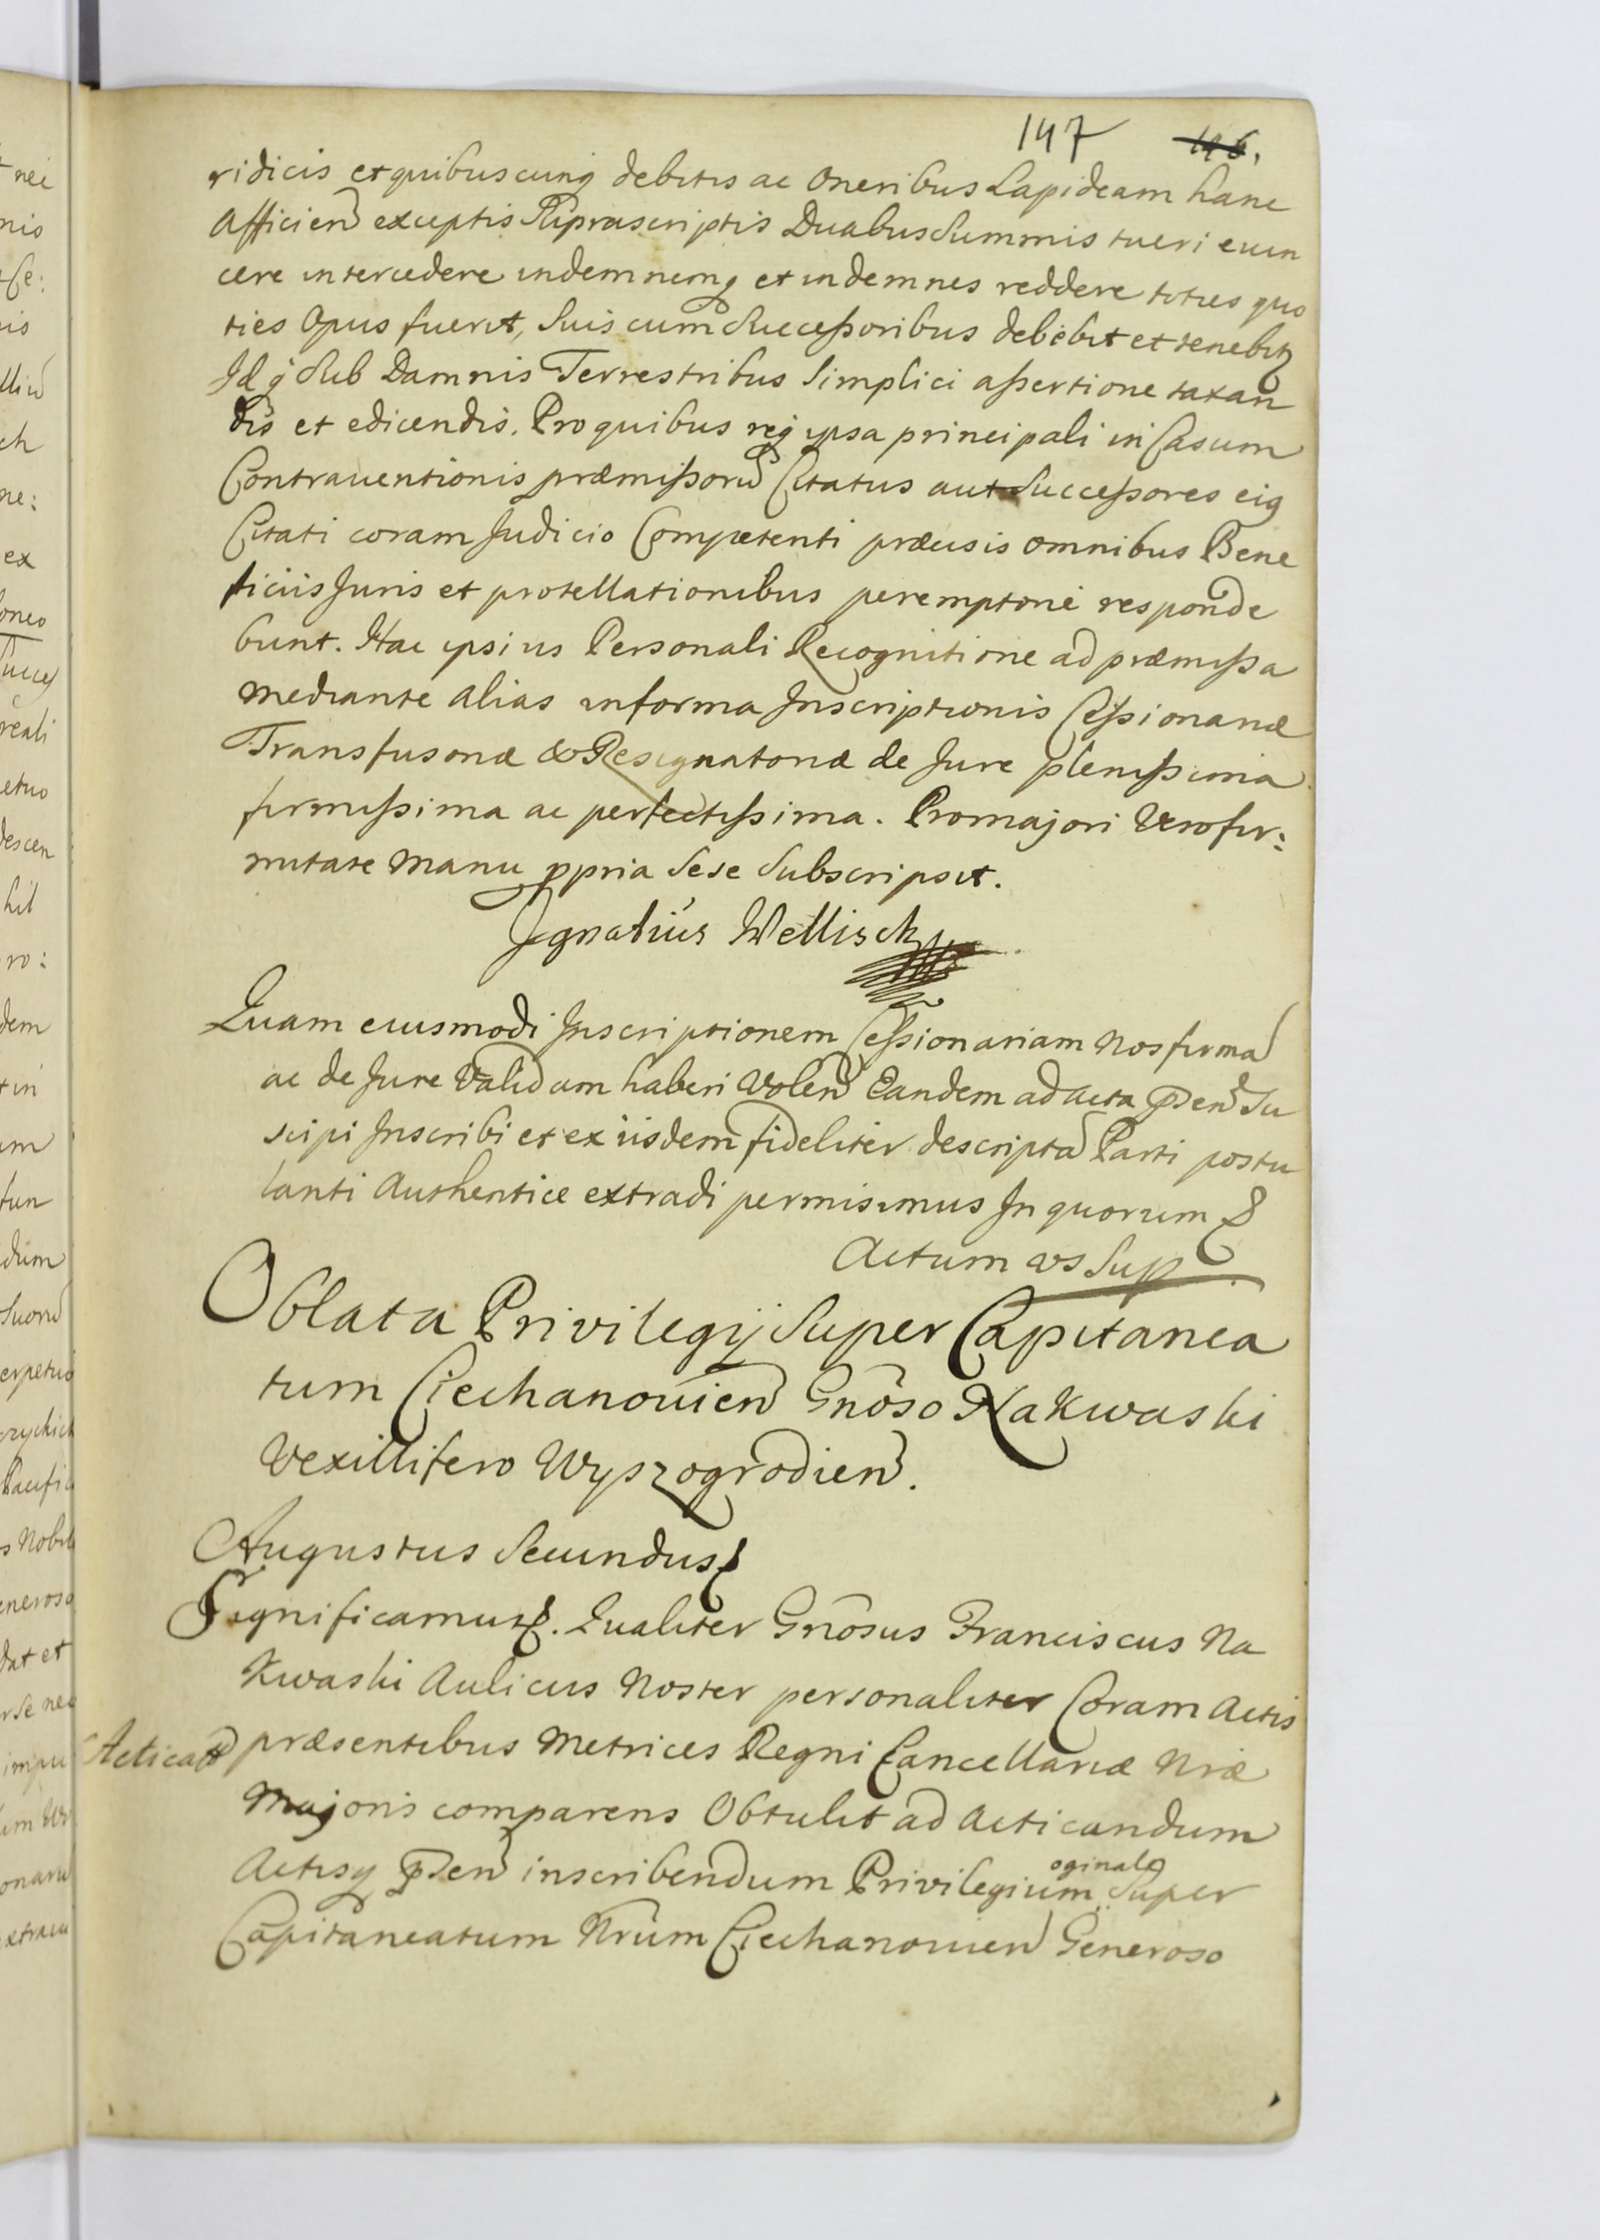 147 146.
ridicis et quibuscunq debitis ac Oneribus Lapideam hanc
Afficien exceptis Suprascriptis Duabus Summis tueri evin
cere intercedere indemnemq et indemnes reddere toties quo
ties Opus fuerit, Suis cum Successoribus debebit et tenebit
Idq Sub Damnis Terrestribus Simplici assertione taxan
dis et edicendis. Pro quibus req ipsa principali in Casum
Contraventionis præmissorū Citatus aut Successores eiq
Citati coram Judicio Competenti præcisis omnibus Bene
ficiis Juris et protellationibus peremptorie responde
bunt. Hac ipsius Personali Recognitione ad præmissa
mediante alias in forma Inscriptionis Cessionariæ
Transfusoriæ & Resignatoriæ de Jure plenissima
firmissima ac perfectissima. Pro majori Vero fir:
mitate manu ppria Sese Subscripsit.
Ignatius Wellisch
Quam eiusmodi Inscriptionem Cessionariam Nos firmā
ac de Jure Validam haberi Volen Eandem ad Acta pden Su
scipi Inscribi et ex iisdem fideliter descriptā Parti postu
lanti Authentice extradi permisimus In quorum &
Actum ut Sup
Oblata Privilegij Super Capitanea
tum Ciechanovien Gnōso Nakwaski
Vexillifero Wyszogrodien.
Augustus Secundus &
Significamus &. Qualiter Gnōsus Franciscus Na
Kwaski Aulicus Noster personaliter Coram Actis
Acticat præsentibus Metrices Regni Cancellariæ Nræ
Majoris comparens Obtulit ad Acticandum
Actisq pden inscribendum Privilegium oginale Super
Capitaneatum Nrum Ciechanovien Generoso